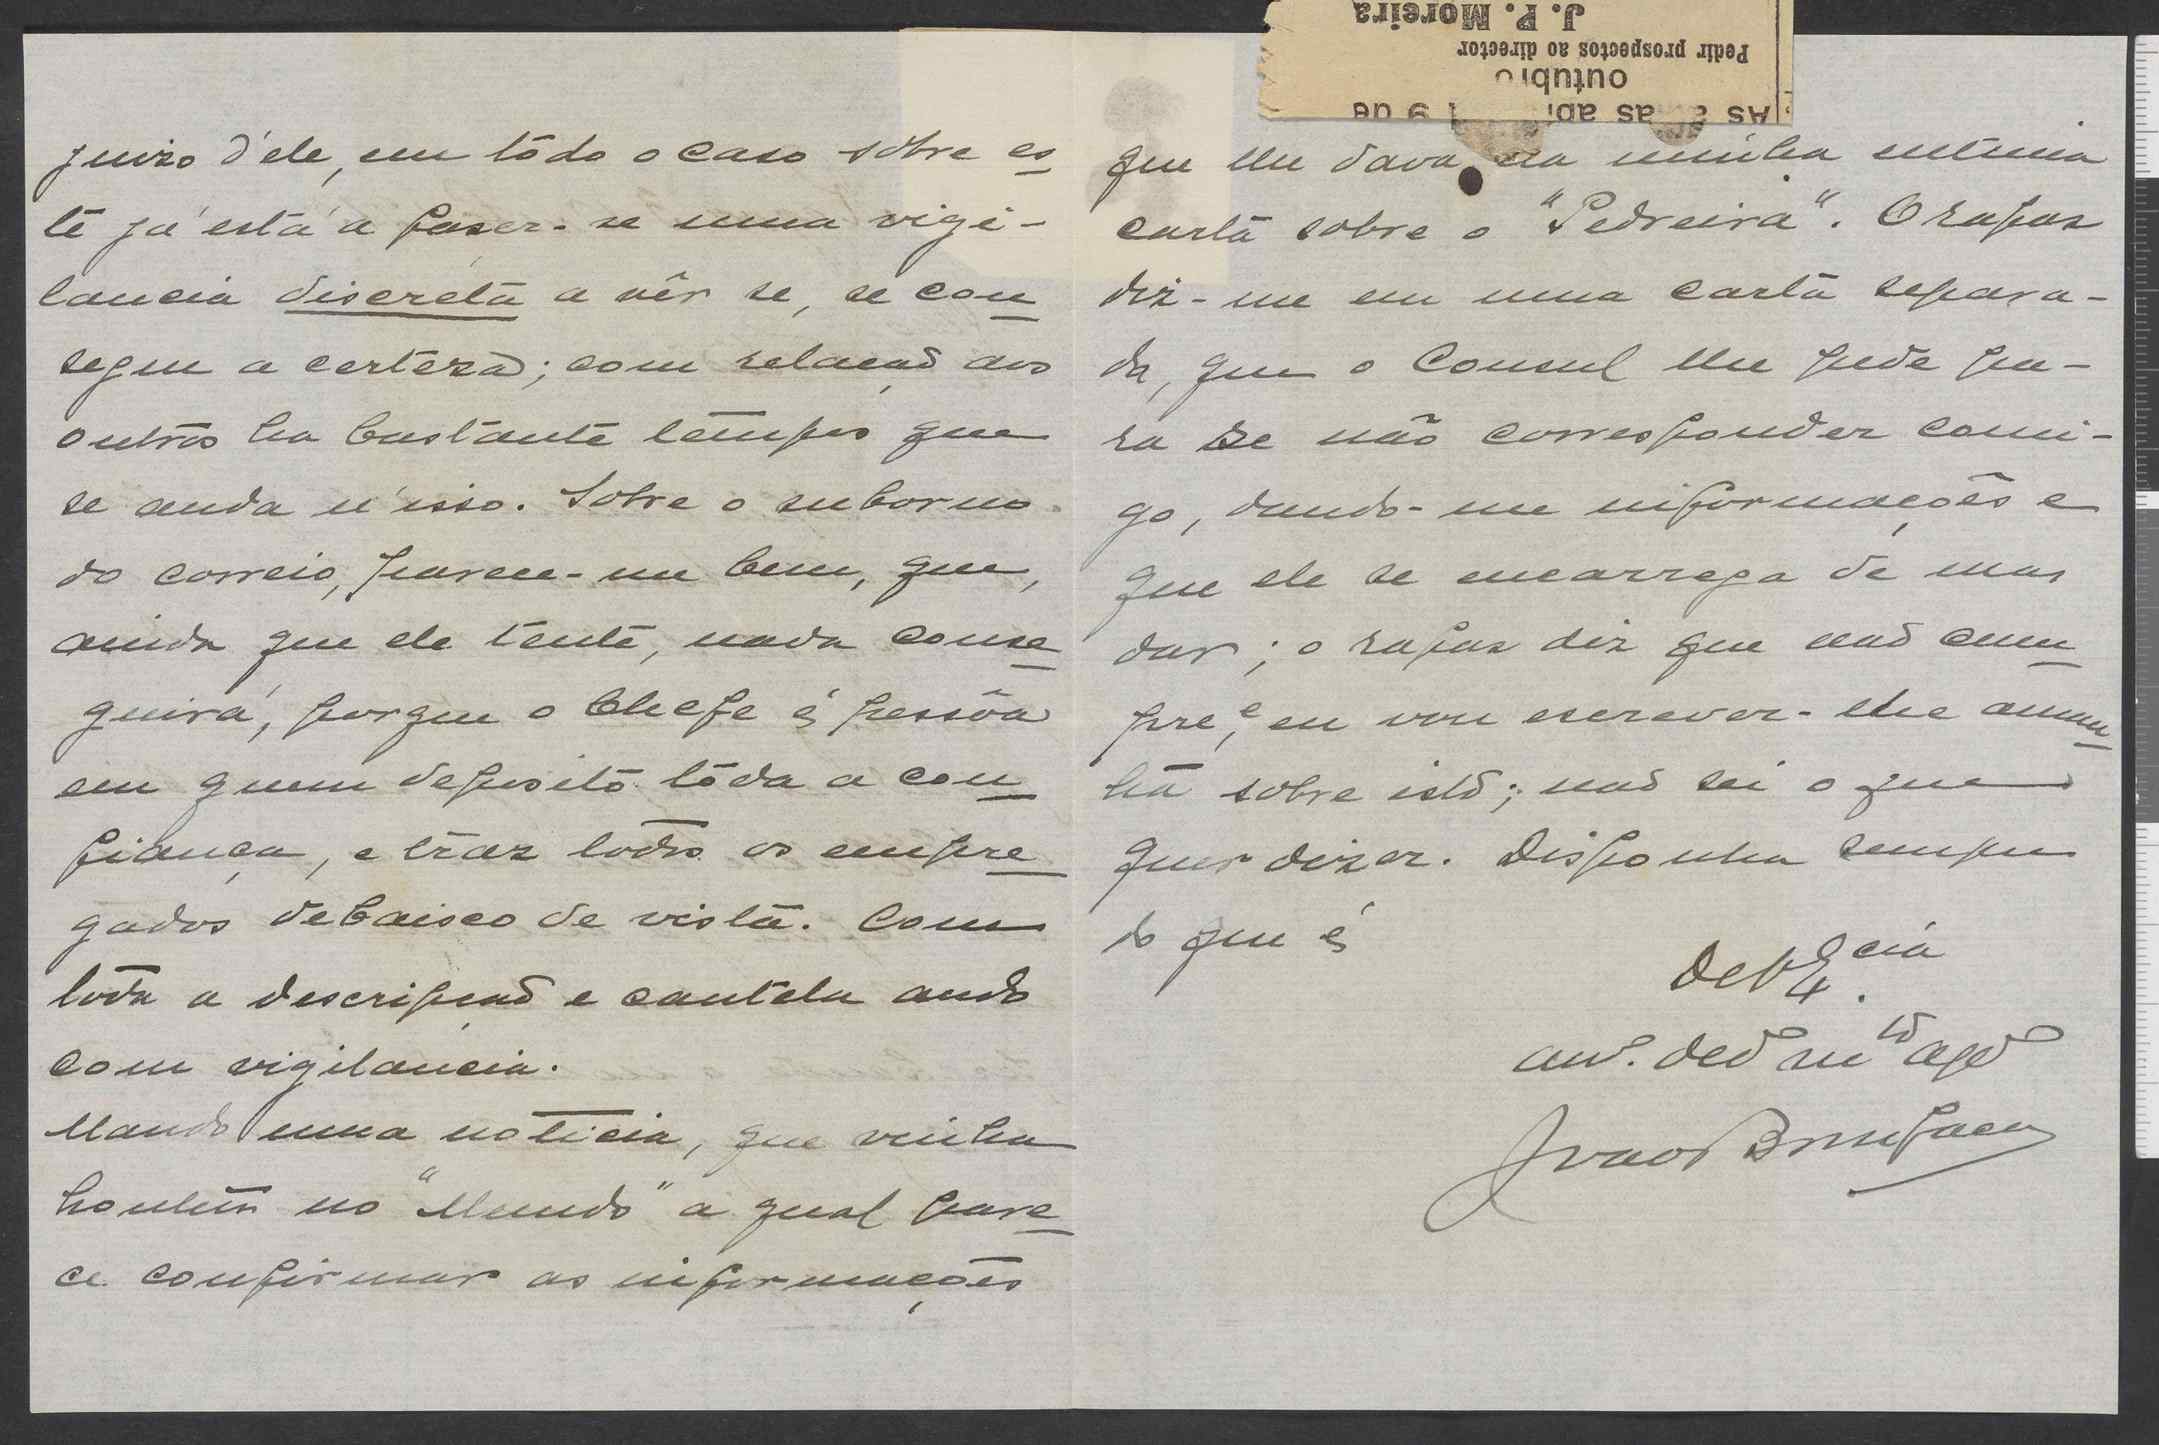 juizo d'ele, em tôdo o caso sôbre es
te já está a faser-se uma vigi-
lancia discreta a vêr se, se con
segue a certeza; com relação aos
outros ha bastante tempo que
se anda n'isso. Sobre o suborno
do correio, parece-me bem, que,
ainda que ele tente, nada conse
guirá, porque o Chefe é pessôa
em quem deposito tôda a con
fiança, e traz todos os empre
gados debaixo de vista. Com
toda a descripção e cautela ando
com vigilancia.
Mando uma noticia, que vinha
hontem no "Mundo" a qual pare
ce confirmar as informações
As abr 9 de
outubro
Pedir prospectos ao director
J. P. Moreira
que lhe dava na minha ultima
carta sobre o "Pedreira". O rapaz
diz-me em uma carta separa-
da, que o Consul lhe pede pa-
ra se não corresponder comi-
go, dando-me informações e
que ele se encarrega de man
dar; o rapaz diz que não cum
pre, e eu vou escrever-lhe aman
hã sobre isto; não sei o que
quer dizer. Disponha sempre
do que é
De V. Ex.cia
am.º ded.º m.to agd.º